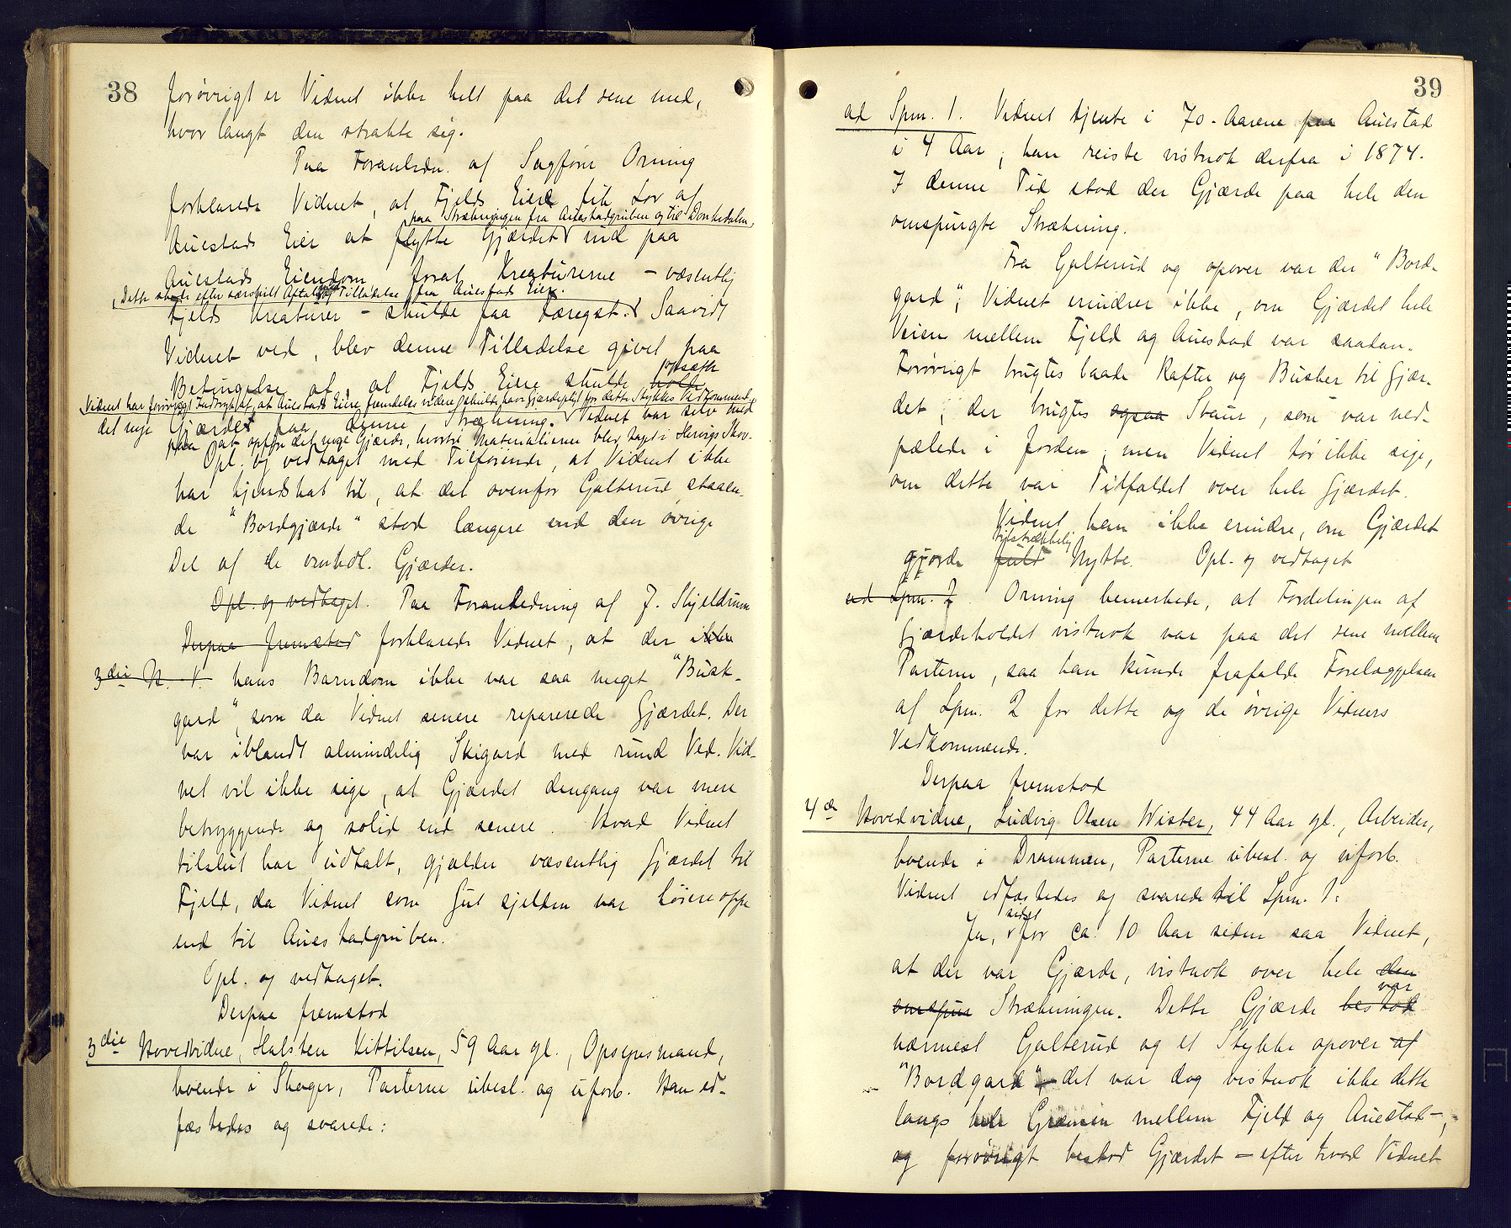 38
forøvrigt er Vidnet ikke helt paa det rene med,
hvor langt den strakte sig.
Paa Foranledn. af Sagfører Orning
forklarede Vidnet, at Fjelds Eier fik Lov af
paa Strækningen fra Auestadgruben og til Donkedalen,
Auestads Eier at flytte Gjærdet ind paa
Auestads Eiendom, forat Kreaturerne – væsentlig
Dette skede efter særskilt Aftale og Tilladelse fra Auestads Eier.
Fjelds Kreaturer – skulde faa Læregst. Saavidt
Vidnet ved, blev denne Tilladelse givet paa
opsætte
Betingelse af, at Fjelds Eiere skulde holde
Vidnet har forøvrigt Indtryk af, at Auestads Eiere fremdeles vilde skulde have gjærdepligt for dette Stykkes Vedkommende.
det nye Gjærdet paa denne Strækning. Vidnet var selv med
paa at opføre det nye Gjærde, hvortil Materialierne blev taget i Skov.
Opl. og vedtaget med Tilføiende, at Vidnet ikke
har kjendskab til, at det ovenfor Galterud staaen-
de "Bordgjærde" stod længere end den øvrige
Del af de omhdl. Gjærder.
Opl. og vedtaget. Paa Foranledning af J. Skjeldrum
Derpaa fremstod forklarede Vidnet, at der ikke
3die H. V. hans Barndom ikke var saa meget "Busk-
gard", som da Vidnet senere reparerede Gjærdet. Der
var iblandt almindelig Skigard med rund Ved. Vid-
net vil ikke sige, at Gjærdet dengang var mere
betryggende og solid end senere. Hvad Vidnet
tilslut har udtalt, gjælder væsentlig Gjærdet til
Fjeld, da Vidnet som Gut sjelden var høiere oppe
end til Auestadgruben.
Opl. og vedtaget.
Derpaa fremstod
3die Hovedvidne, Halsten Kittilsen, 59 Aar gl., Opsynsmand,
boende i Skoger, Parterne ubesl. og uforb. Han ed-
fæstedes og svarede:
39
ad Spm. 1. Vidnet tjente i 70-Aarene paa Auestad
i 4 Aar; han reiste vistnok derfra i 1874.
I denne Tid stod der Gjærde paa hele den
omspurgte Strækning.
Fra Galterud og opover var der "Bord-
gard"; Vidnet erindrer ikke, om Gjærdet hele
Veien mellem Fjeld og Auestad var saadan.
Forøvrigt brugtes baade Rafter og Busker til Gjær-
det; der brugtes ogsaa Staur, som var ned-
pælede i Jorden; men Vidnet tør ikke sige,
om dette var Tilfældet over hele Gjærdet.
Vidnet kan ikke erindre, om Gjærdet
tilstrækkelig
gjorde fuld Nytte. Opl. og vedtaget
ad Spm. 2. Orning bemærkede, at Fordelingen af
Gjærdeholdet vistnok var paa det rene mellem
Parterne, saa han kunde frafalde Forelæggelsen
af Spm. 2 for dette og de øvrige Vidners
Vedkommende.
Derpaa fremstod
4de Hovedvidne, Ludvig Olsen Wister, 44 Aar gl., Arbeider,
boende i Drammen, Parterne ubesl. og uforb.
Vidnet edfæstedes og svarede til Spm. 1:
sidst
Ja, for ca. 10 Aar siden saa Vidnet,
at der var Gjærde, vistnok over hele den
var
omspur Strækningen. Dette Gjærde bestod
nærmest Galterud og et Stykke opover af
"Bordgard" – det var dog vistnok ikke dette
langs hele Grænsen mellem Fjeld og Auestad –,
og forøvrigt bestod Gjærdet – efter hvad Vidnet